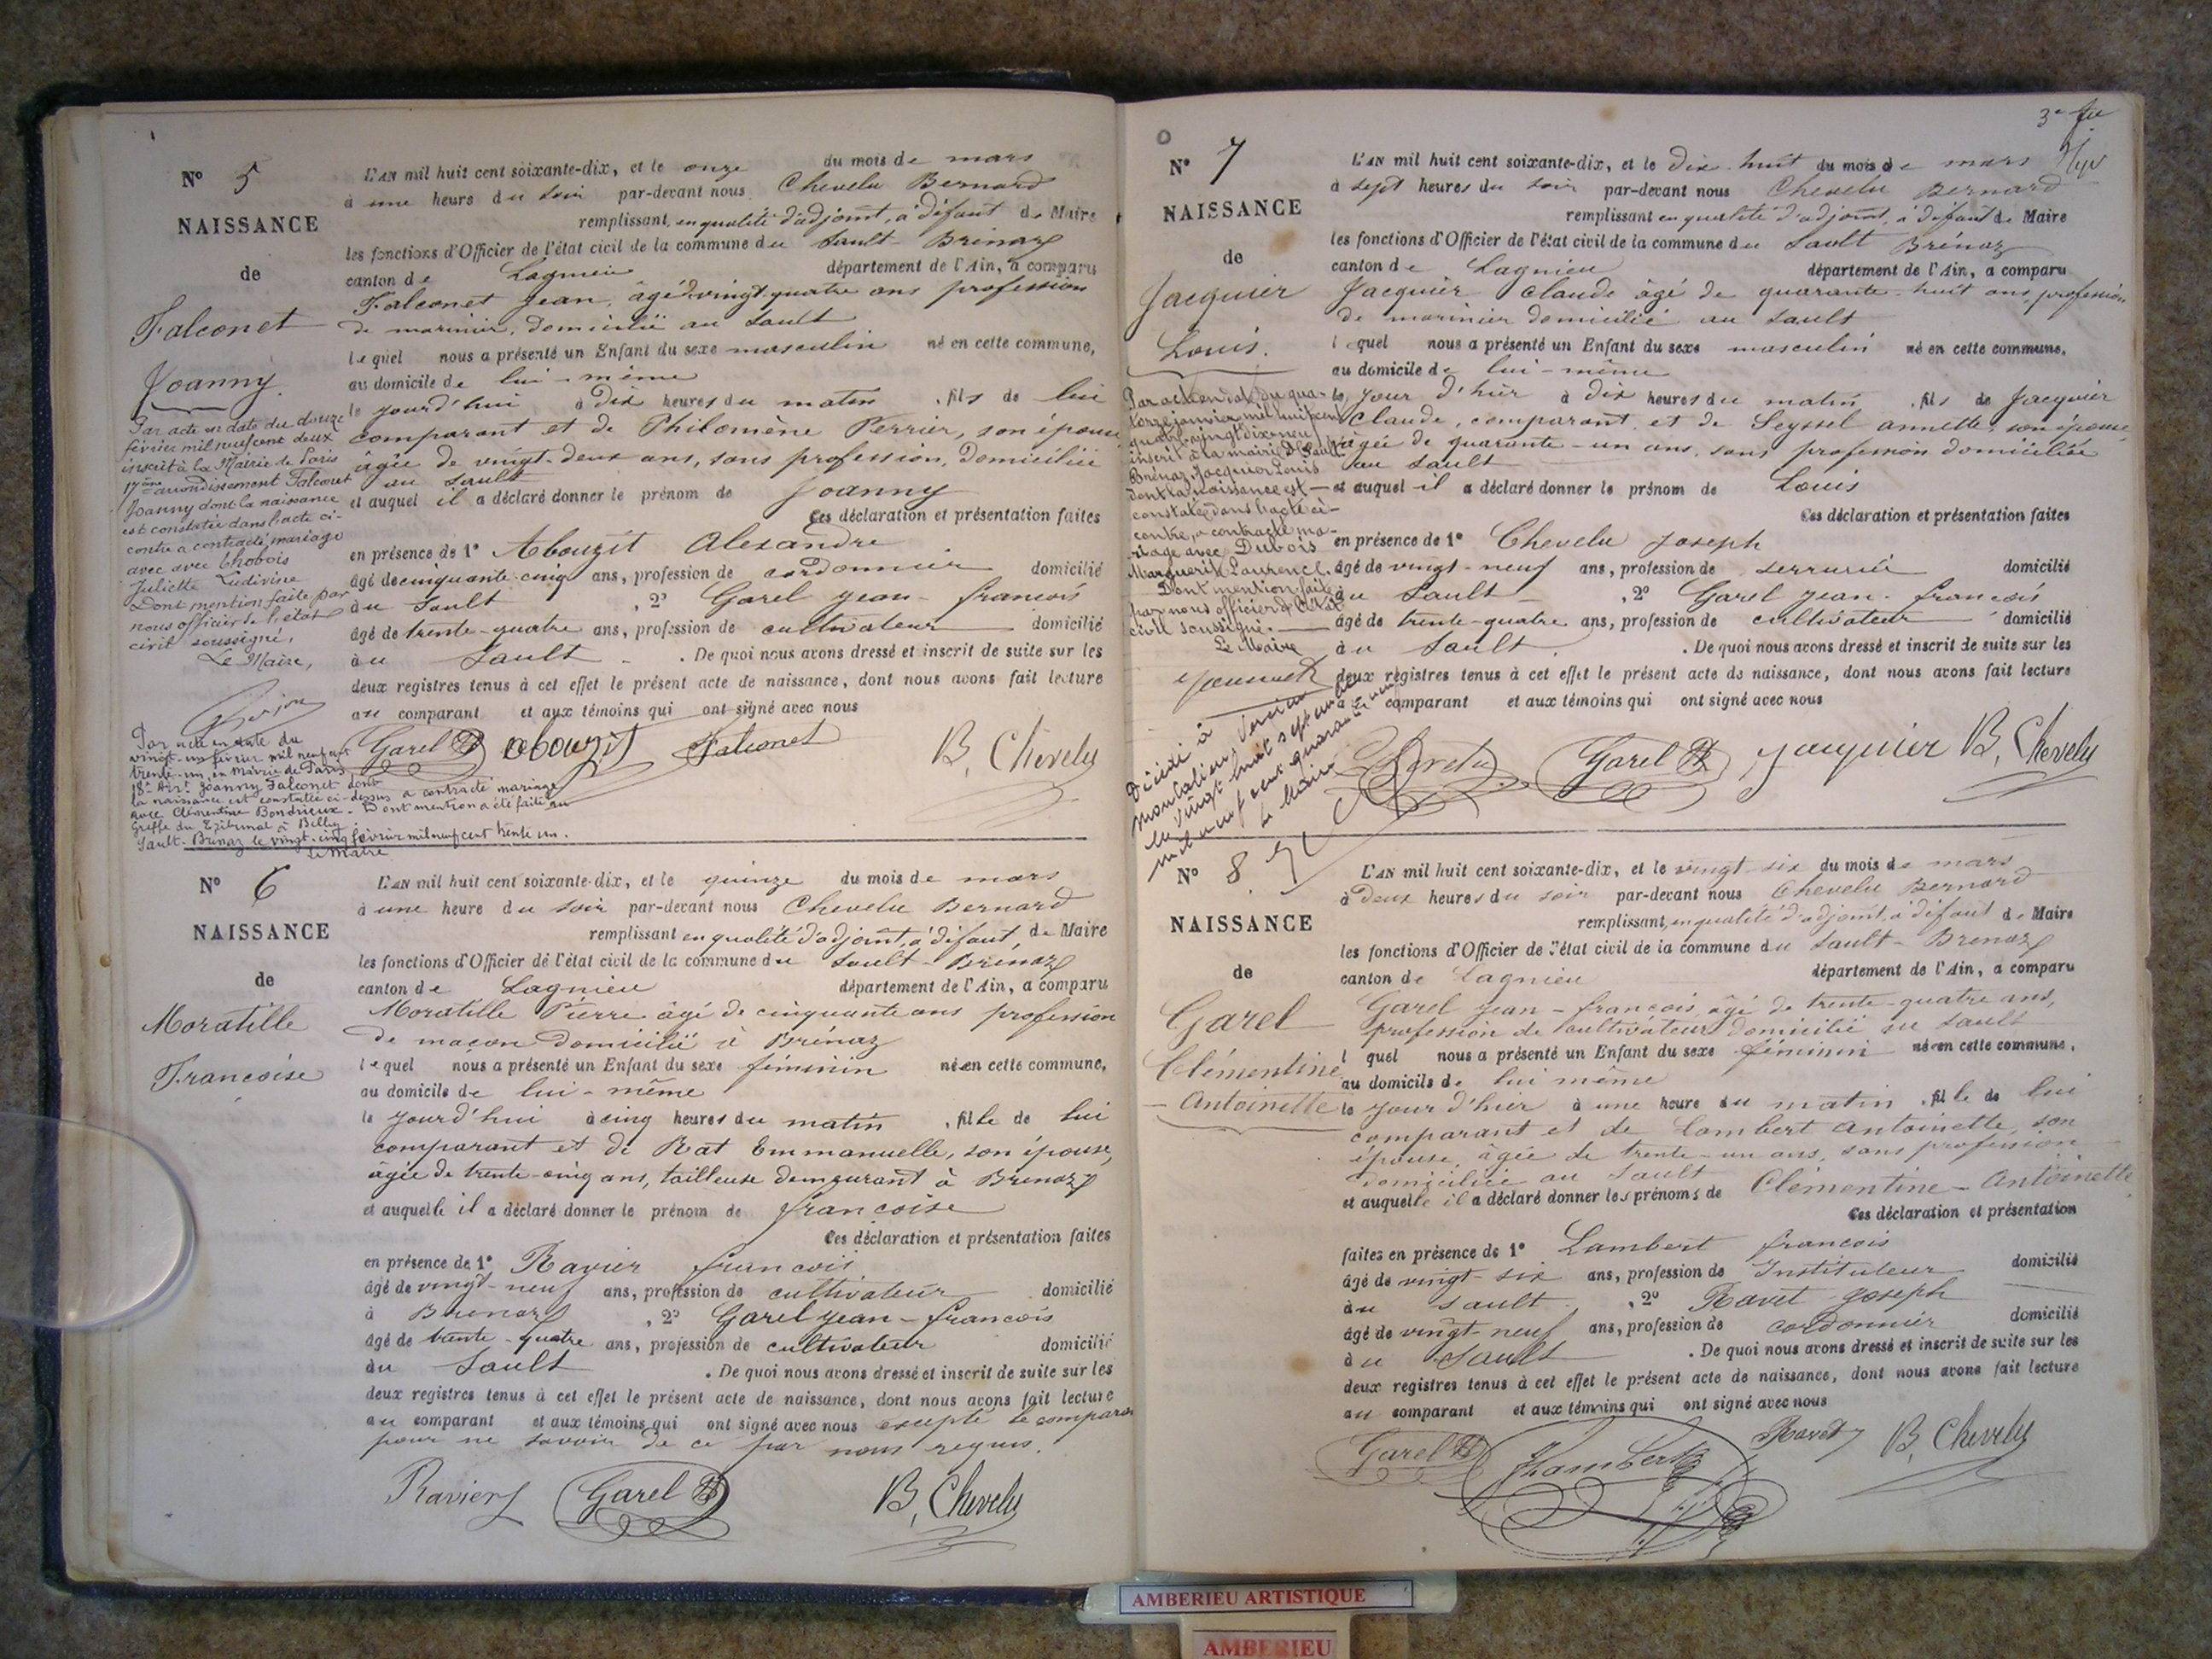 N° 5
NAISSANCE
de
Falconet
Joanny
Par acte en date du douze
février mil neuf cent deux
inscrit à la Mairie de Paris
17ème arrondissement Falconet
Joanny dont la naissance
est constatée dans l'acte ci-
contre a contracté mariage
avec avec Chobois
Juliette Ludivine
Dont mention faite par
nous officier de l'état
civil soussigné,
Le Maire,
Par acte en date du
vingt-un février mil neuf cent
trente-un, en Mairie de Paris,
18e Arr. Joanny Falconet dont
la naissance est constatée ci-dessus a contracté mariage
avec Clémentine Bondrieux. Dont mention a été faite au
Greffe du Tribunal à Belley
Sault-Brénaz le vingt-cinq février mil neuf cent trente un.
Le Maire
L'AN mil huit cent soixante-dix, et le onze du mois de mars
à une heure du soir par-devant nous Chevelu Bernard
remplissant, en qualité d'adjoint, à défaut de Maire
les fonctions d'Officier de l'état civil de la commune du Sault-Brénaz
canton de Lagnieu département de l'Ain, a comparu
Falconet Jean, âgé de vingt-quatre ans profession
de marinier, domicilié au Sault
lequel nous a présenté un Enfant du sexe masculin né en cette commune,
au domicile de lui-même
le jourd'hui à dix heures du matin, fils de lui
comparant et de Philomène Perrier, son épouse
âgée de vingt-deux ans, sans profession, domiciliée
au Sault
et auquel il a déclaré donner le prénom de Joanny
Ces déclaration et présentation faites
en présence de 1° Abouzit Alexandre
âgé de cinquante-cinq ans, profession de cordonnier domicilié
au Sault, 2° Garel Jean-françois
âgé de trente-quatre ans, profession de cultivateur domicilié
au Sault. De quoi nous avons dressé et inscrit de suite sur les
deux registres tenus à cet effet le présent acte de naissance, dont nous avons fait lecture
au comparant et aux témoins qui ont signé avec nous
Garel Abouzit Falconet B. Chevelu
N° 6
NAISSANCE
de
Moratille
Françoise
L'AN mil huit cent soixante-dix, et le quinze du mois de mars
à une heure du soir par-devant nous Chevelu Bernard
remplissant en qualité d'adjoint, à défaut, de Maire
les fonctions d'Officier de l'état civil de la commune du Sault-Brénaz
canton de Lagnieu département de l'Ain, a comparu
Moratille Pierre âgé de cinquante ans profession
de maçon domicilié à Brénaz
lequel nous a présenté un Enfant du sexe féminin né en cette commune,
au domicile de lui-même
le jourd'hui à cinq heures du matin, fille de lui
comparant et de Rat Emmanuelle, son épouse,
âgée de trente-cinq ans, tailleuse demeurant à Brenaz
et auquelle il a déclaré donner le prénom de françoise
Ces déclaration et présentation faites
en présence de 1° Ravier françois
âgé de vingt-neuf ans, profession de cultivateur domicilié
à Brenaz, 2° Garel Jean-françois
âgé de trente-quatre ans, profession de cultivateur domicilié
au Sault. De quoi nous avons dressé et inscrit de suite sur les
deux registres tenus à cet effet le présent acte de naissance, dont nous avons fait lecture
au comparant et aux témoins qui ont signé avec nous excepté le comparant
pour ne savoir de ce par nous requis.
Ravier Garel B. Chevelu
3e fe
N° 7
NAISSANCE
de
Jacquier
Louis.
Par acte en date du qua-
torze janvier mil huit cent
quatre-vingt dix-neuf
inscrit à la mairie de Sault-
Brénaz, Jacquier Louis
dont la naissance est
constatée dans l'acte ci-
contre, a contracté ma-
riage avec Dubois
Marguerite Laurence.
Dont mention faite
par nous officier de l'état
civil soussigné.
Le Maire
Décédé à
Montalieu Vercieu
le vingt huit septembre
mil neuf cent quarante neuf
Le Maire
L'AN mil huit cent soixante-dix, et le dix-huit du mois de mars
à sept heures du soir par-devant nous Chevelu Bernard
remplissant en qualité d'adjoint, à défaut de Maire
les fonctions d'Officier de l'état civil de la commune du Sault Brénaz
canton de Lagnieu département de l'Ain, a comparu
Jacquier Claude âgé de quarante-huit ans, profession
de marinier domicilié au Sault
lequel nous a présenté un Enfant du sexe masculin né en cette commune,
au domicile de lui-même
le jour d'hier à dix heures du matin, fils de Jacquier
Claude, comparant, et de Seyssel annette, son épouse
âgée de quarante-un ans, sans profession domiciliée
au Sault
et auquel il a déclaré donner le prénom de Louis
Ces déclaration et présentation faites
en présence de 1° Chevelu Joseph
âgé de vingt-neuf ans, profession de serrurier domicilié
au Sault, 2° Garel Jean-françois
âgé de trente-quatre ans, profession de cultivateur domicilié
au Sault. De quoi nous avons dressé et inscrit de suite sur les
deux registres tenus à cet effet le présent acte de naissance, dont nous avons fait lecture
au comparant et aux témoins qui ont signé avec nous
Garel Jacquier B. Chevelu
N° 8.
NAISSANCE
de
Garel
Clémentine
Antoinette
L'AN mil huit cent soixante-dix, et le vingt-six du mois de mars
à deux heures du soir par-devant nous Chevelu Bernard
remplissant, en qualité d'adjoint, à défaut de Maire
les fonctions d'Officier de l'état civil de la commune du Sault-Brenaz
canton de Lagnieu département de l'Ain, a comparu
Garel Jean-françois, âgé de trente-quatre ans,
profession de cultivateur domicilié au Sault
lequel nous a présenté un Enfant du sexe féminin né en cette commune,
au domicile de lui même
le jour d'hier à une heure du matin, fille de lui
comparant et de Lambert Antoinette, son
épouse, âgée de trente-un ans, sans profession
domiciliée au Sault
et auquelle il a déclaré donner les prénoms de Clémentine-Antoinette
Ces déclaration et présentation
faites en présence de 1° Lambert françois
âgé de vingt-six ans, profession de Instituteur domicilié
au Sault, 2° Ravet Joseph
âgé de vingt-neuf ans, profession de cordonnier domicilié
au Sault. De quoi nous avons dressé et inscrit de suite sur les
deux registres tenus à cet effet le présent acte de naissance, dont nous avons fait lecture
au comparant et aux témoins qui ont signé avec nous
Garel Lambert Ravet B. Chevelu
AMBERIEU ARTISTIQUE
AMBERIEU